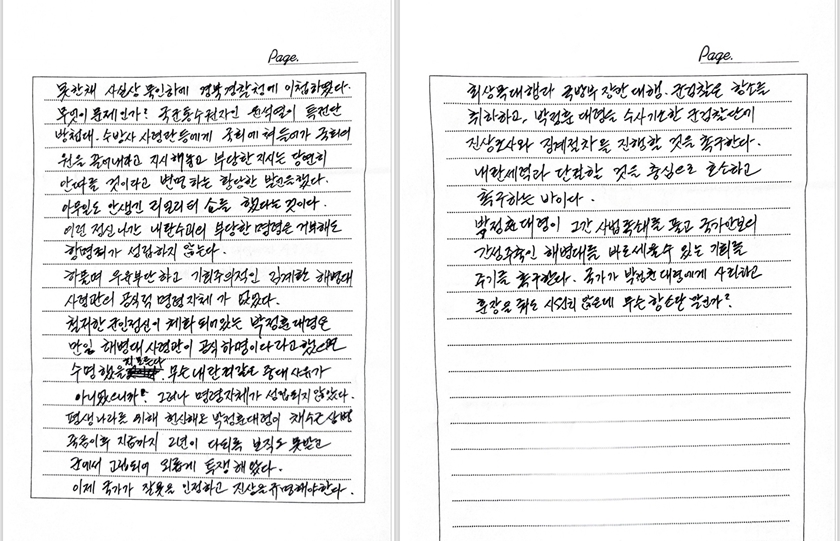 Page.
못한채 사실상 묵인하에 경북경찰청에 이첩하였다.
무엇이 문제인가? 국군통수권자인 윤석열이 특전단
방첩대. 수방사 사령관들에게 국회에 쳐들어가 국회의
원을 끌어내라고 지시해놓고 부당한 지시는 당연히
안따를 것이라고 변명하는 황당한 발언을 했다.
아무일도 안생긴 리얼리티 쇼를 했다는 것이다.
이런 정신나간 내란수괴의 부당한 명령은 거부해도
항명죄가 성립하지 않는다.
하물며 우유부단하고 기회주의적인 김계환 해병대
사령관의 공식적 명령자체가 없었다.
철저한 군인정신이 체화되어있는 박정훈대령은
만일 해병대사령관이 공식하명이다라고 했으면
수명했을지 모른다. 무슨 내란죄같은 중대사유가
아니였으니까? 그러나 명령자체가 성립되지 않았다.
평생나라를 위해 헌신해온 박정훈대령이 채수근상병
죽음이후 지금까지 2년이 다되록 보직도 못받고
군에서 고립되어 외롭게 투쟁해왔다.
이제 국가가 잘못을 인정하고 진상을 규명해야한다.
Page.
최상목대행과 국방부장관대행. 군검찰은 항소를
취하하고, 박정훈 대령을 수사기소한 군검찰단에
진상조사와 징계절차를 진행할 것을 촉구한다.
내란세력과 단절할 것을 충심으로 호소하고
촉구하는 바이다.
박정훈대령이 그간 사법족쇄를 풀고 국가안보의
간성주축인 해병대를 바로세울수 있는 기회를
주기를 촉구한다. 국가가 박정훈대령에게 사죄하고
훈장을 줘도 시원치 않은데 무슨 항소란 말인가?